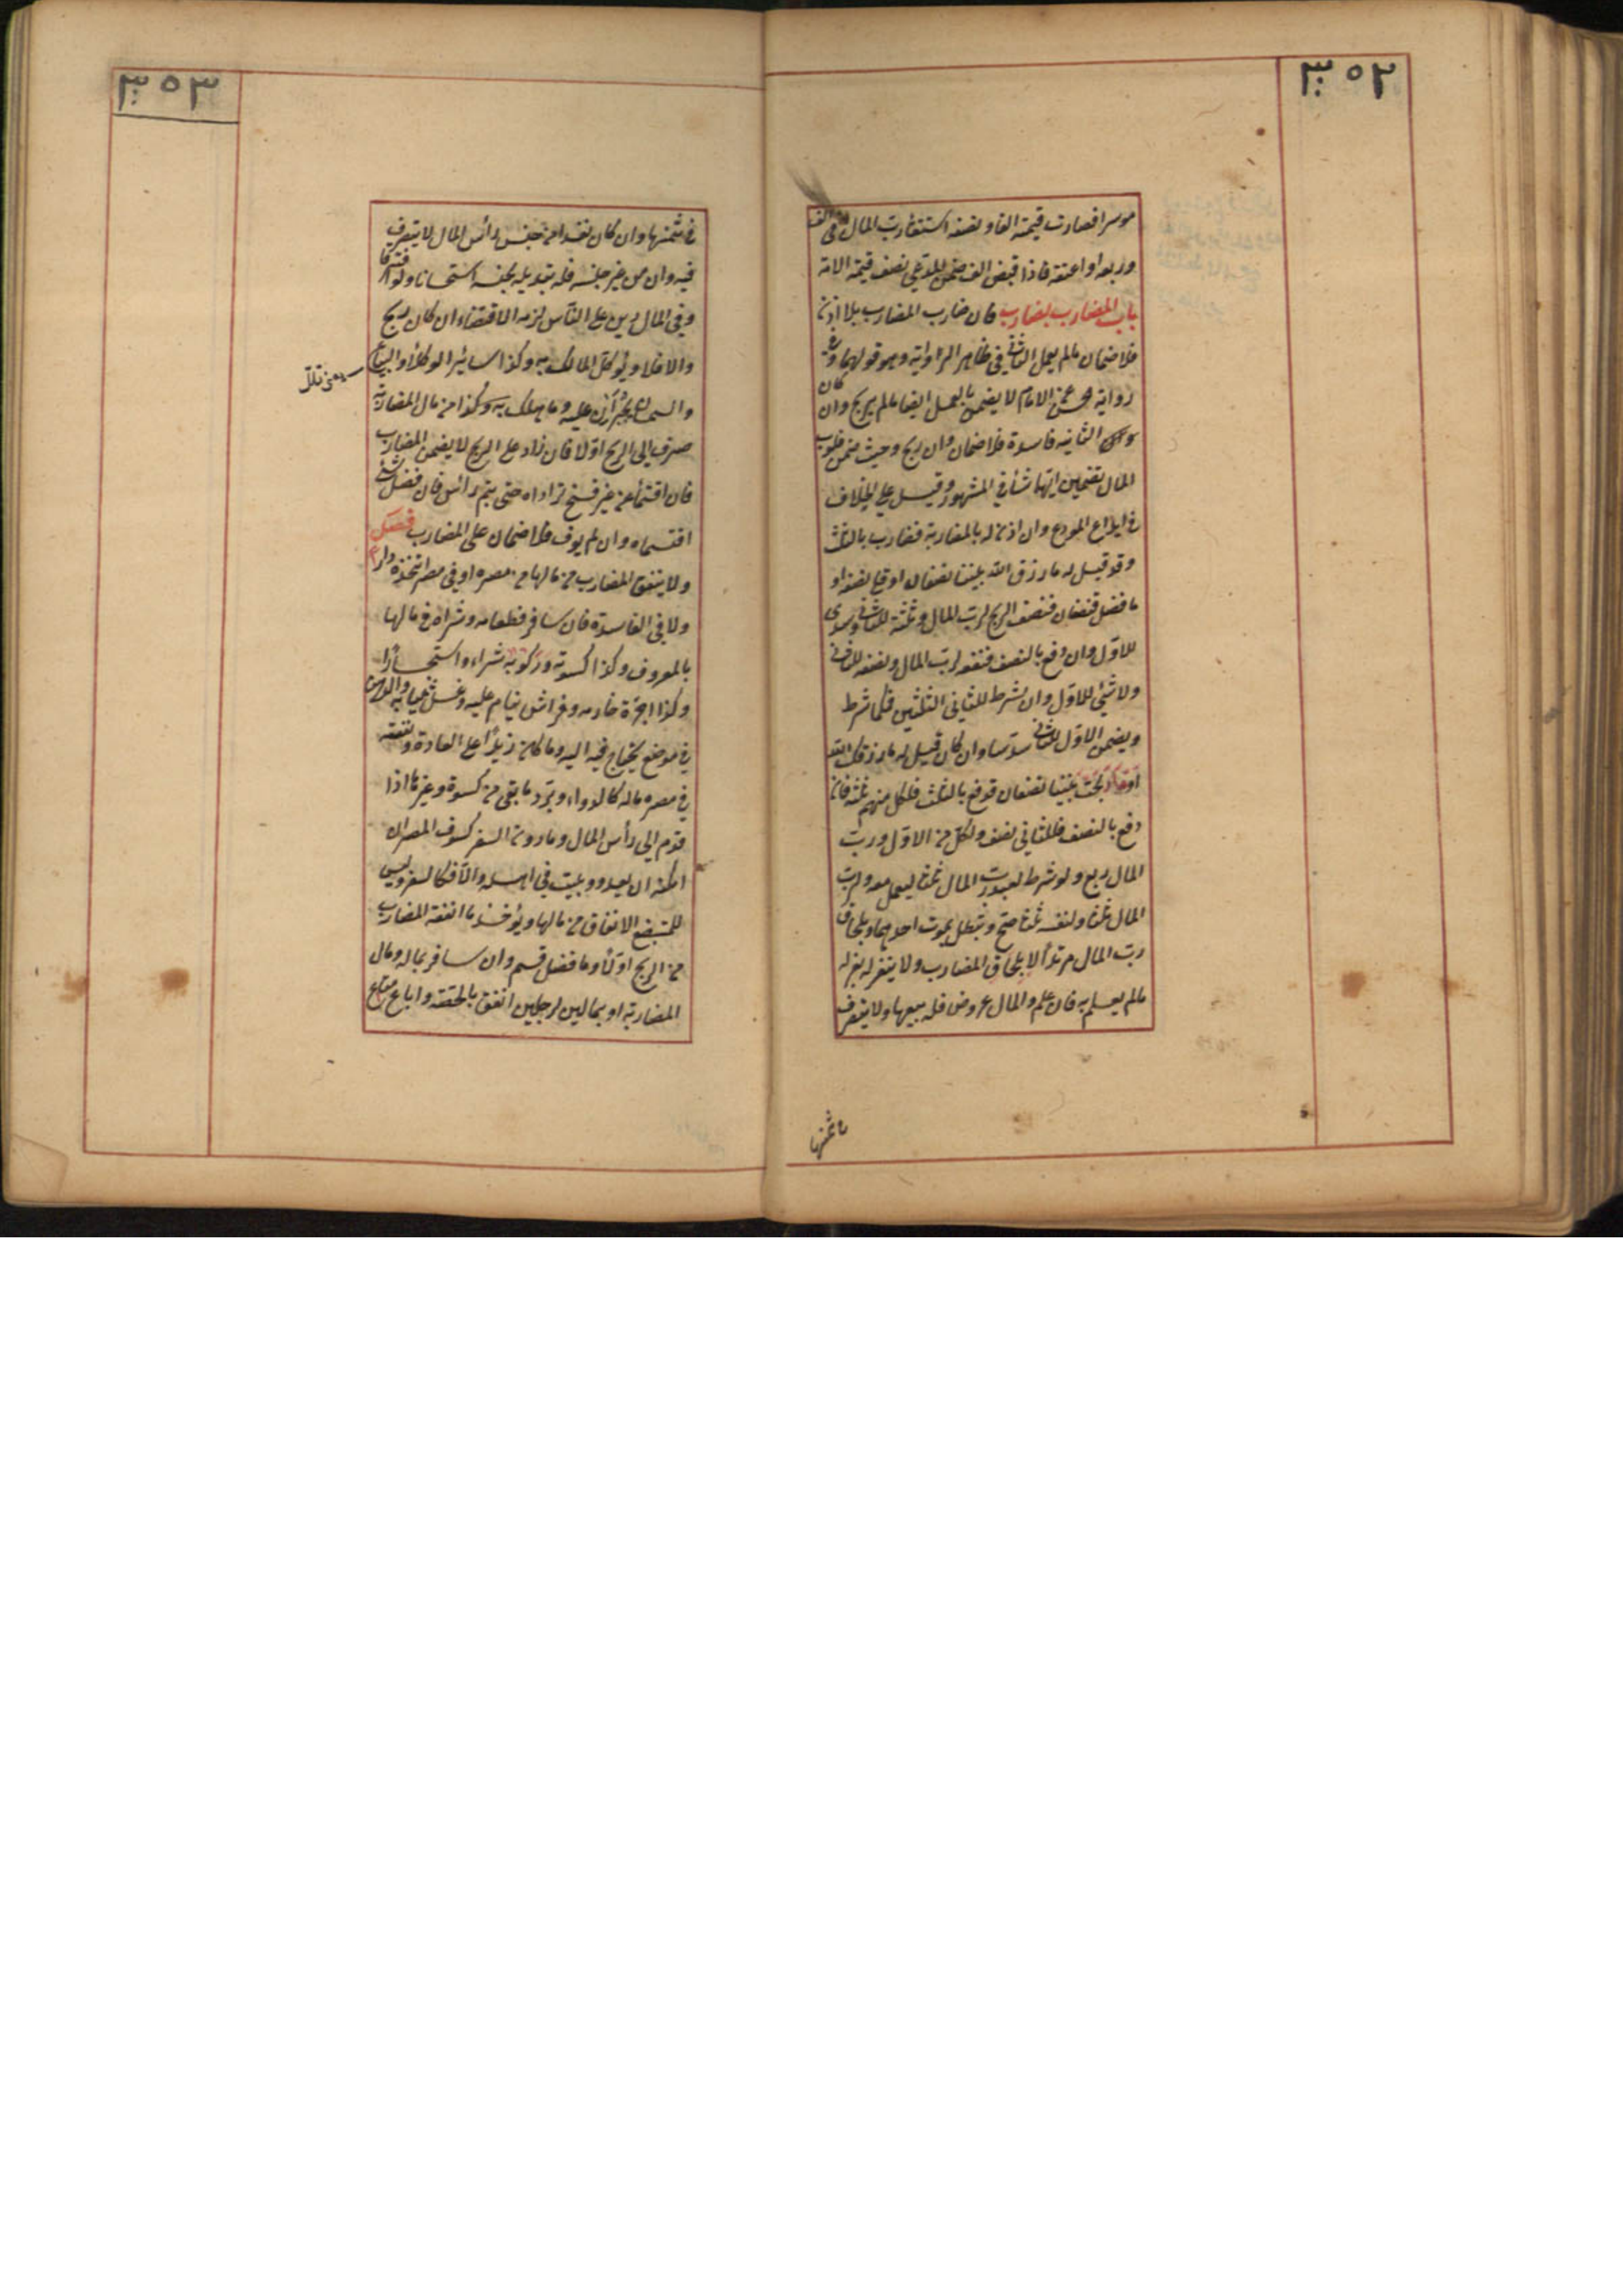 ٣٥٢
موسرا فصارت قيمته الفا ونصفه استسعاه رب المال في الف
وربعه او اعتقه فاذا قبض الف ضمن للمدعي نصف قيمة الامة
باب المضارب يضارب فان ضارب المضارب بلا اذن
فلا ضمان مالم يعمل الثاني في ظاهر الرواية وهو قولهما وفي
رواية الحسن عن الامام لا يضمن بالعمل ايضا مالم يربح وان كان
الثانية فاسدة فلا ضمان وان ربح وحيث ضمن فلرب
المال تضمين ايهما شأ في المشهور وقيل على الخلاف
في ايداع المودع وان اذن له بالمضاربة فضارب بالثلث
وقد قيل له ما رزق الله بيننا نصفان او فلي نصفه او
ما فضل فنصفان فنصف الربح لرب المال وثلثه للثاني وسدس
للاول وان دفع بالنصف فنصفه لرب المال ونصفه للثاني
ولا شئ للاول وان شرط للثاني الثلثين فكما شرط
ويضمن الاول للثاني سدسا وان كان قيل له ما رزقك الله
او ما ربحت بيننا نصفان فدفع بالثلث فلكل منهم ثلثه فان
دفع بالنصف فللثاني نصف ولكل من الاول ورب
المال ربع ولو شرط لعبد رب المال ثلثا ليعمل معه ولرب
المال ثلثا ولنفسه ثلثا صح وتبطل بموت احدهما وبلحاق
رب المال مرتدا لا بلحاق المضارب ولا ينعزل بعزله
مالم يعلم به فان علم والمال عروض فله بيعها ولا يتصرف
في ثمنها
٣٥٣
في ثمنها وان كان نقدا من جنس رأس المال لا يتصرف
فيه وان من غير جنسه فله تبديله بجنسه استحسانا ولو افترقا
وفي المال دين على الناس لزمه الاقتضاء ان كان ربح
والا فلا ويوكل المالك به وكذا سائر الوكلاء والبياع
والسمسار يجبران عليه وما هلك من مال المضاربة
صرف الى الربح اولا فان زاد على الربح لا يضمن المضارب
فان اقتسماه من غير فسخ ترادا حتى يتم رأس فان فضل شئ
اقتسماه وان لم يوف فلا ضمان على المضارب فصل
ولا ينفق المضارب من مالها في مصره او في مصر اتخذه دارا
ولا في الفاسدة فان سافر فطعامه وشرابه في مالها
بالمعروف وكذا كسوته وركوبه شراء واستيجارا
وكذا اجرة خادمه وفراش ينام عليه وغسل ثيابه والدهن
في موضع يحتاج فيه اليه وما كان زائدا على العادة ونفقته
في مصره ماله كالدواء ويرد ما بقى من كسوة وغيرها اذا
قدم الى رأس المال وما دون السفر كسوق المصر ان
امكنه ان يغدو ويبيت في اهله والا فكالسفر وليس
للمستبضع الانفاق من مالها ويؤخذ ما انفقه المضارب
من الربح اولا وما فضل قسم وان سافر بماله ومال
المضاربة او بمالين لرجلين انفق بالحصة وان باع متاع